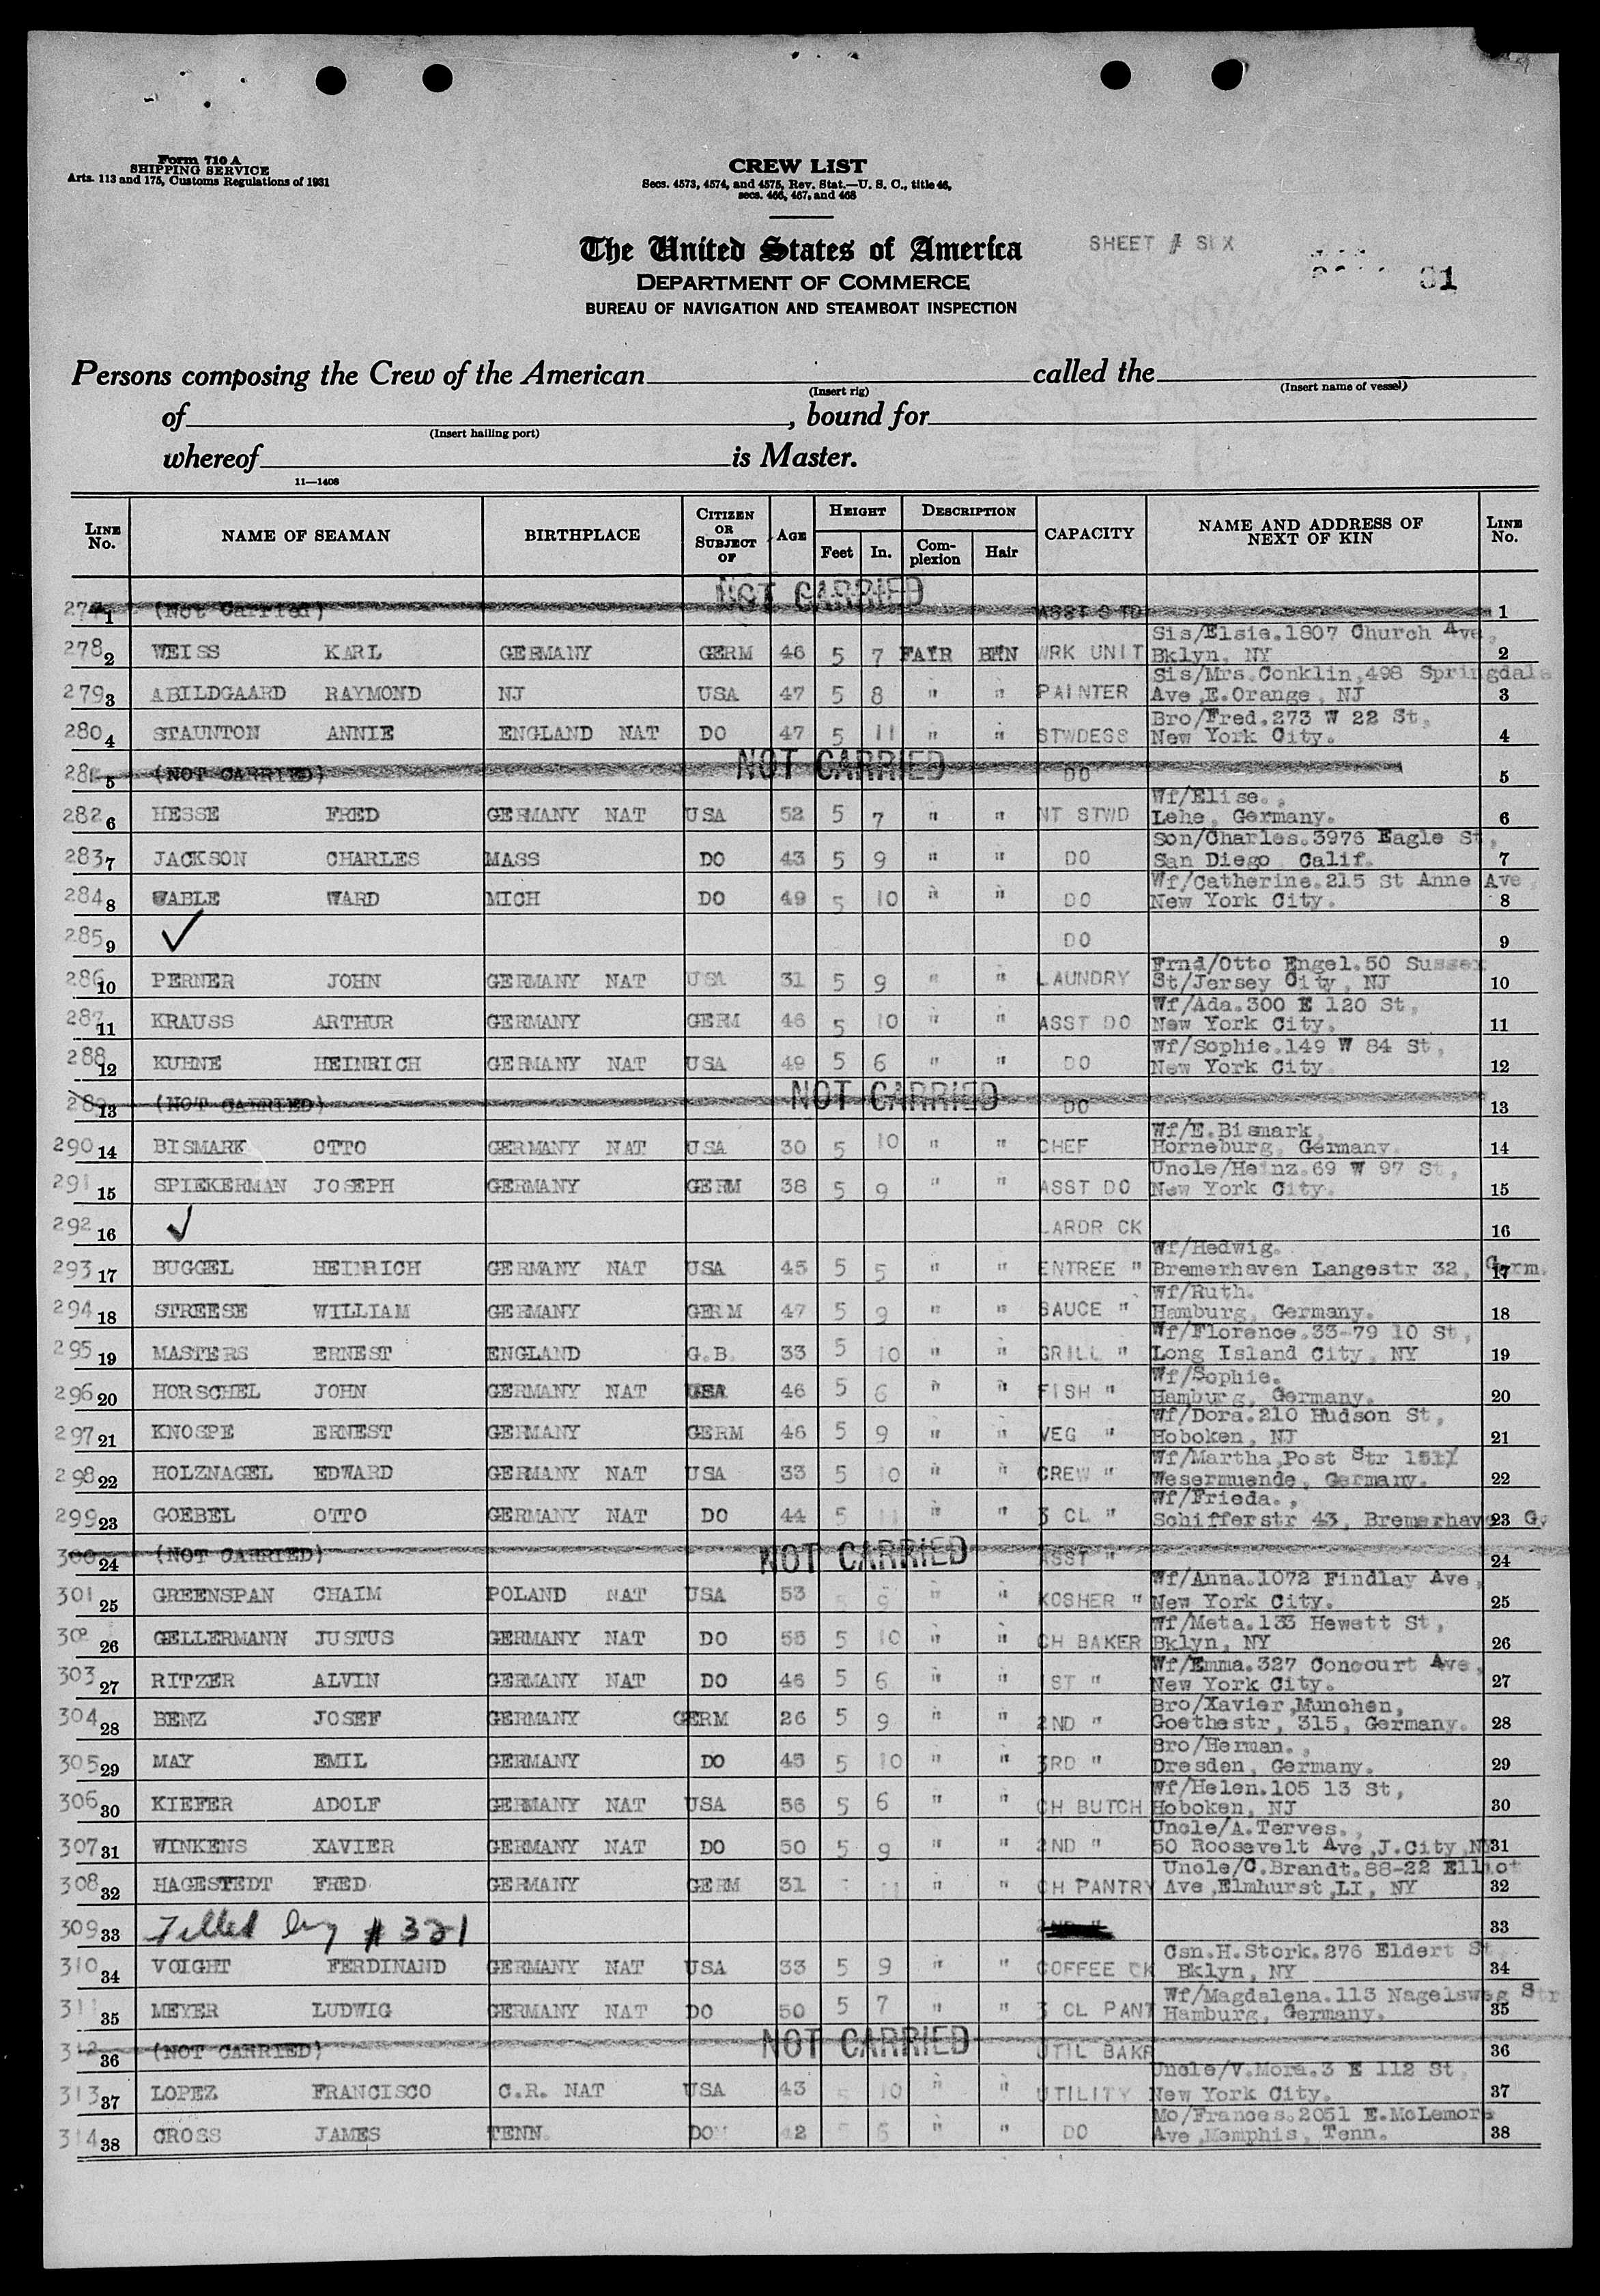 Form 710 A
SHIPPING SERVICE
Arts. 113 and 175, Customs Regulations of 1931
CREW LIST
Secs. 4573, 4574, and 4575, Rev. Stat.—U. S. C., title 46,
secs. 466, 467, and 468
The United States of America
SHEET # SIX
DEPARTMENT OF COMMERCE
31
BUREAU OF NAVIGATION AND STEAMBOAT INSPECTION
Persons composing the Crew of the American called the
(Insert rig) (Insert name of vessel)
of , bound for
(Insert hailing port)
whereof is Master.
11—1408
LINE No. NAME OF SEAMAN BIRTHPLACE CITIZEN OR SUBJECT OF AGE HEIGHT Feet In. DESCRIPTION Complexion Hair CAPACITY NAME AND ADDRESS OF NEXT OF KIN LINE No.
277 1 (Not Carried) NOT CARRIED ASST STD 1
278 2 WEISS KARL GERMANY GERM 46 5 7 FAIR BRN WRK UNIT Sis/Elsie.1807 Church Ave, Bklyn, NY 2
279 3 ABILDGAARD RAYMOND NJ USA 47 5 8 " " PAINTER Sis/Mrs.Conklin,498 Springdale Ave,E.Orange, NJ 3
280 4 STAUNTON ANNIE ENGLAND NAT DO 47 5 11 " " STWDESS Bro/Fred.273 W 22 St, New York City. 4
281 5 (NOT CARRIED) NOT CARRIED DO 5
282 6 HESSE FRED GERMANY NAT USA 52 5 7 " " NT STWD Wf/Elise., Lehe, Germany. 6
283 7 JACKSON CHARLES MASS DO 43 5 9 " " DO Son/Charles.3976 Eagle St, San Diego Calif. 7
284 8 WABLE WARD MICH DO 49 5 10 " " DO Wf/Catherine.215 St Anne Ave, New York City. 8
285 9 ✓ DO 9
286 10 PERNER JOHN GERMANY NAT USA 31 5 9 " " LAUNDRY Frnd/Otto Engel.50 Sussex St/Jersey City, NJ 10
287 11 KRAUSS ARTHUR GERMANY GERM 46 5 10 " " ASST DO Wf/Ada.300 E 120 St, New York City. 11
288 12 KUHNE HEINRICH GERMANY NAT USA 49 5 6 " " DO Wf/Sophie.149 W 84 St, New York City. 12
289 13 (NOT CARRIED) NOT CARRIED DO 13
290 14 BISMARK OTTO GERMANY NAT USA 30 5 10 " " CHEF Wf/E.Bismark, Horneburg, Germany. 14
291 15 SPIEKERMAN JOSEPH GERMANY GERM 38 5 9 " " ASST DO Uncle/Heinz.69 W 97 St, New York City. 15
292 16 ✓ LARDR CK 16
293 17 BUGGEL HEINRICH GERMANY NAT USA 45 5 5 " " ENTREE " Wf/Hedwig. Bremerhaven Langestr 32, Germ. 17
294 18 STREESE WILLIAM GERMANY GERM 47 5 9 " " SAUCE " Wf/Ruth. Hamburg, Germany. 18
295 19 MASTERS ERNEST ENGLAND G.B. 33 5 10 " " GRILL " Wf/Florence.33-79 10 St, Long Island City, NY 19
296 20 HORSCHEL JOHN GERMANY NAT USA 46 5 6 " " FISH " Wf/Sophie. Hamburg, Germany. 20
297 21 KNOSPE ERNEST GERMANY GERM 46 5 9 " " VEG " Wf/Dora.210 Hudson St, Hoboken, NJ 21
298 22 HOLZNAGEL EDWARD GERMANY NAT USA 33 5 10 " " CREW " Wf/Martha,Post Str Wesermuende, Germany. 22
299 23 GOEBEL OTTO GERMANY NAT DO 44 5 11 " " 3 CL " Wf/Frieda., Schifferstr 43, Bremerhaven G, 23
300 24 (NOT CARRIED) NOT CARRIED ASST " 24
301 25 GREENSPAN CHAIM POLAND NAT USA 53 5 9 " " KOSHER " Wf/Anna.1072 Findlay Ave, New York City. 25
302 26 GELLERMANN JUSTUS GERMANY NAT DO 55 5 10 " " CH BAKER Wf/Meta.133 Hewett St, Bklyn, NY 26
303 27 RITZER ALVIN GERMANY NAT DO 46 5 6 " " 1ST " Wf/Emma.327 Concourt Ave, New York City. 27
304 28 BENZ JOSEF GERMANY GERM 26 5 9 " " 2ND " Bro/Xavier,Munchen, Goethestr, 315, Germany. 28
305 29 MAY EMIL GERMANY DO 45 5 10 " " 3RD " Bro/Herman., Dresden, Germany. 29
306 30 KIEFER ADOLF GERMANY NAT USA 56 5 6 " " CH BUTCH Wf/Helen.105 13 St, Hoboken, NJ 30
307 31 WINKENS XAVIER GERMANY NAT DO 50 5 9 " " 2ND " Uncle/A.Terves., 50 Roosevelt Ave,J.City,NJ 31
308 32 HAGESTEDT FRED GERMANY GERM 31 11 " " CH PANTRY Uncle/C.Brandt.88-22 Elliot Ave,Elmhurst,LI, NY 32
309 33 Filled by # 321 2ND " 33
310 34 VOIGHT FERDINAND GERMANY NAT USA 33 5 9 " " COFFEE CK Csn.H.Stork.276 Eldert St, Bklyn, NY 34
311 35 MEYER LUDWIG GERMANY NAT DO 50 5 7 " " 3 CL PANT Wf/Magdalena.113 Nagelsweg Str Hamburg, Germany. 35
312 36 (NOT CARRIED) NOT CARRIED UTIL BAKR 36
313 37 LOPEZ FRANCISCO C.R. NAT USA 43 5 10 " " UTILITY Uncle/V.Mora.3 E 112 St, New York City. 37
314 38 CROSS JAMES TENN. DO 42 5 6 " " DO Mo/Frances.2051 E.McLemore Ave,Memphis, Tenn. 38